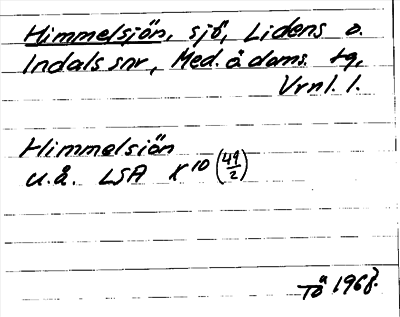 Himmelsjön, sjö, Lidens o.
Indals snr, Med. å doms. tg,
Vrnl. l.
Himmelsjön
u.å. LSA X 10 (49/2)
Tö 1968.